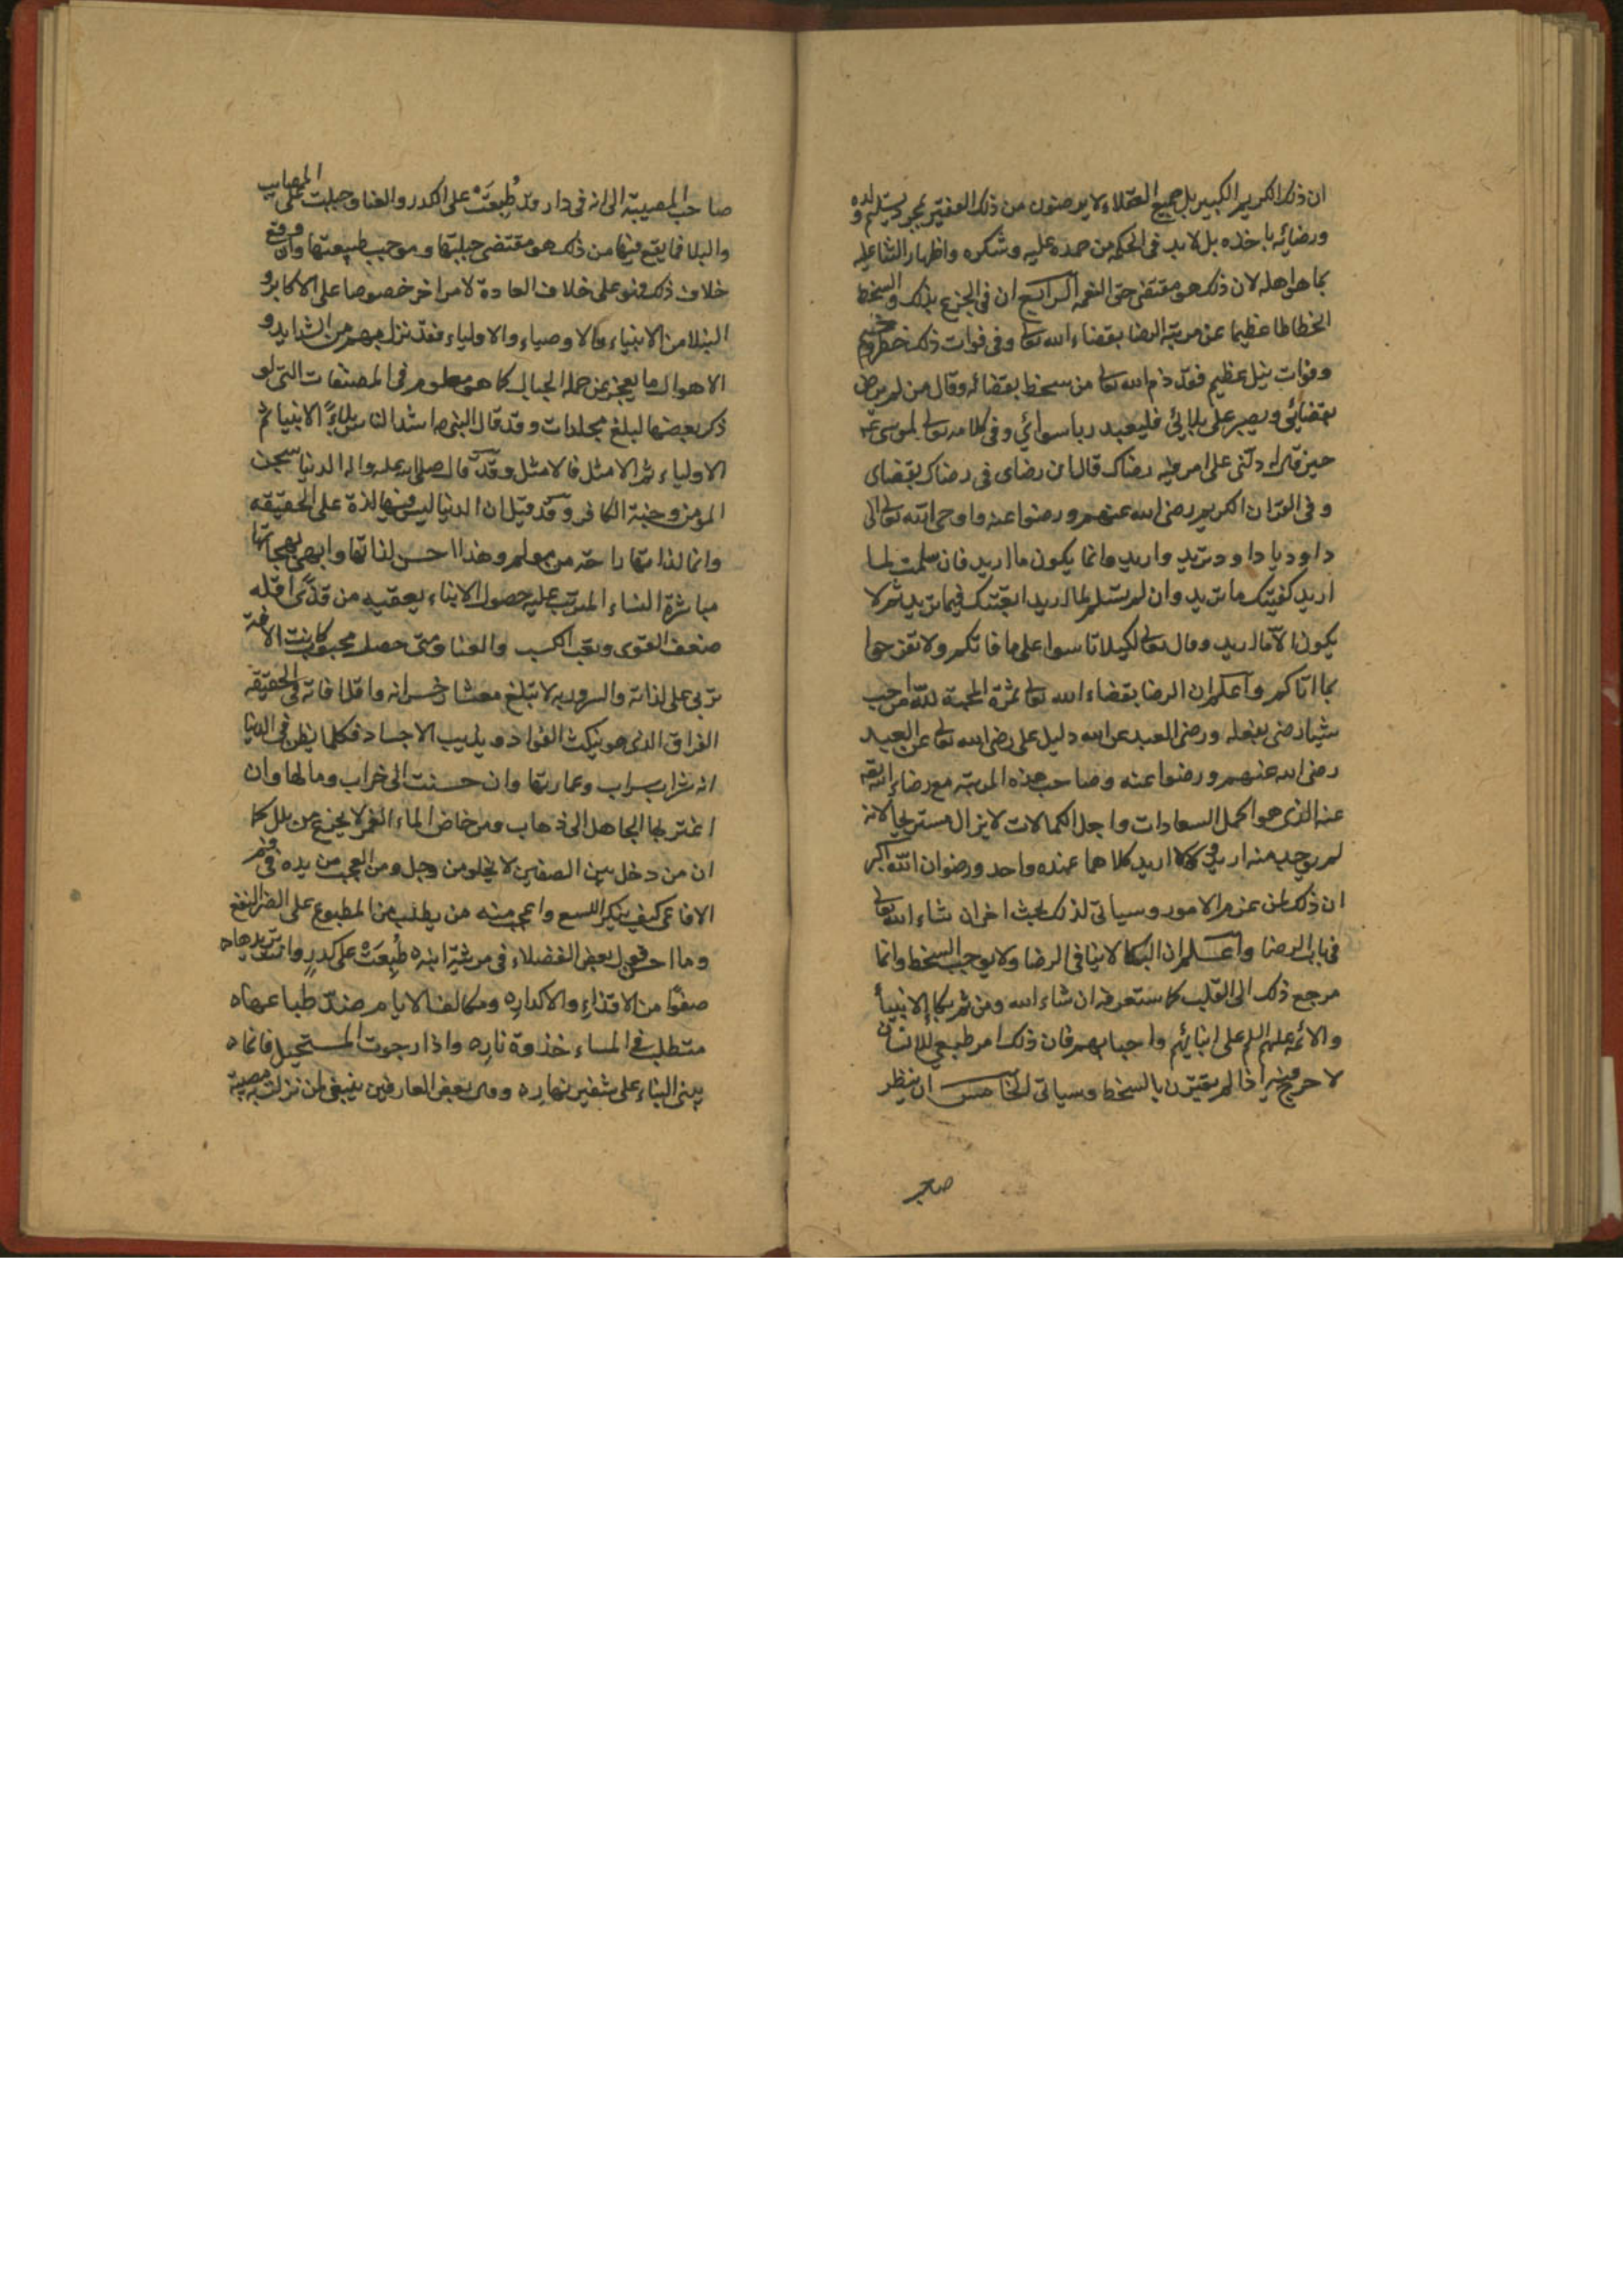 ان ذلك الكريم الكبير بل جميع العقلاء لا يرضون من ذلك الفقير بمجرد تسليم ولده
ورضائه باخذه بل لا بد في الحكم من حمده عليه وشكره واظهار الثنا عليه
بما هو اهله لان ذلك هو مقتضى حق النعمه الرابع ان في الجزع بذلك والسخط
انحطاطا عظيما عن مرتبة الرضا بقضاء الله تعالى وفي فوات ذلك خطر وخيم
وفوات نيل عظيم فقد ذم الله تعالى من سخط بقضائه وقال من لم يرض
بقضائي ويصبر على بلائي فليعبد ربا سوائي وفي كلامه تعالى لموسى ع
حين قال له دلني على امر فيه رضاك قال ان رضاي في رضاك بقضاي
وفي القران الكريم رضي الله عنهم ورضوا عنه واوحى الله تعالى الى
داود يا داود تريد واريد وانما يكون ما اريد فان سلمت لما
اريد كفيتك ما تريد وان لم تسلم لما اريد اتعبتك فيما تريد ثم لا
يكون الا ما اريد وقال تعالى لكيلا تاسوا على ما فاتكم ولا تفرحوا
بما اتاكم واعلم ان الرضا بقضاء الله تعالى ثمرة المحبة لله من احب
شيئا رضي بفعله ورضى العبد عن الله دليل على رضى الله تعالى عن العبد
رضي الله عنهم ورضوا عنه وصاحب هذه المرتبة مع رضاء الله تعالى
عنه الذي هو اكمل السعادات واجل الكمالات لا يزال مستريحا لانه
لم يوجد منه اريد ولا لا اريد كلاهما عنده واحد ورضوان الله اكبر
ان ذلك لمن عزم الامور وسياتي لذلك بحث اخر ان شاء الله تعالى
في باب الرضا واعلم ان البكا لا ينافي الرضا ولا يوجب السخط وانما
مرجع ذلك الى القلب كما ستعرفه ان شاء الله ومن ثم بكا الانبيأ
والائمه عليهم السلم على ابنائهم واحبابهم فان ذلك امر طبيعي للانسان
لا حرج فيه اذا لم يقترن بالسخط وسياتي الخامس ان ينظر
صاحب
صاحب المصيبة الى انه في دار قد طُبِعَتْ على الكدر والعنا وجبلت على المصايب
والبلا فما يقع فيها من ذلك هو مقتضى جبلتها وموجب طبيعتها وان وقع
خلاف ذلك فهو على خلاف العادة لامر اخر خصوصا على الاكابر و
النبلا من الانبياء والاوصياء والاولياء فقد نزل بهم من الشدايد و
الاهوال ما يعجز عن حمله الجبال كما هو معلوم في المصنفات التي لو
ذكر بعضها لبلغ مجلدات وقد قال النبي ص اشد الناس بلاءً الانبيا ثم
الاولياء ثم الامثل فالامثل وقد قال صلى الله عليه واله الدنيا سجن
المؤمن وجنة الكافر وقد قيل ان الدنيا ليس فيها لذة على الحقيقه
وانما لذاتها راحة من مولم وهذا احسن لذاتها وابهى بهجاتها
مباشرة النساء المترتب عليه حصول الابناء يعقبه من قذًى اقله
ضعف القوى وتعب الكسب والعنا ومتى حصل محبوب كانت الافة
تربي على لذاته والسرور به لا تبلغ معشار خسرانه واقل افاته في الحقيقه
الفراق الذي هو ينكث الفواد ويذيب الاجساد فكلما يظن في الدنيا
انه شراب سراب وعمارتها وان حسنت الى خراب ومالها وان
اغتر بها الجاهل الى ذهاب ومن خاض الماء الغمر لا يجزع من بلل كما
ان من دخل بين الصفين لا يخلو من وجل ومن العجب من يده في فم
الافاعي كيف ينكر اللسع واعجب منه من يطلب من المطبوع على الضر النفع
وما احسن قول بعض الفضلاء في مرثية ابنه ه طُبِعَتْ على كدرٍ وانت تريدها ه
صفوًا من الاقذاءِ والاكدارِ ه ومكلف الايام ضد طباعها ه
متطلب في الماء جذوة نارِ ه واذا رجوت المستحيل فانما ه
يبني البناء على شفير نهارِ ه وقال بعض العارفين ينبغي لمن نزلت به مصيبة